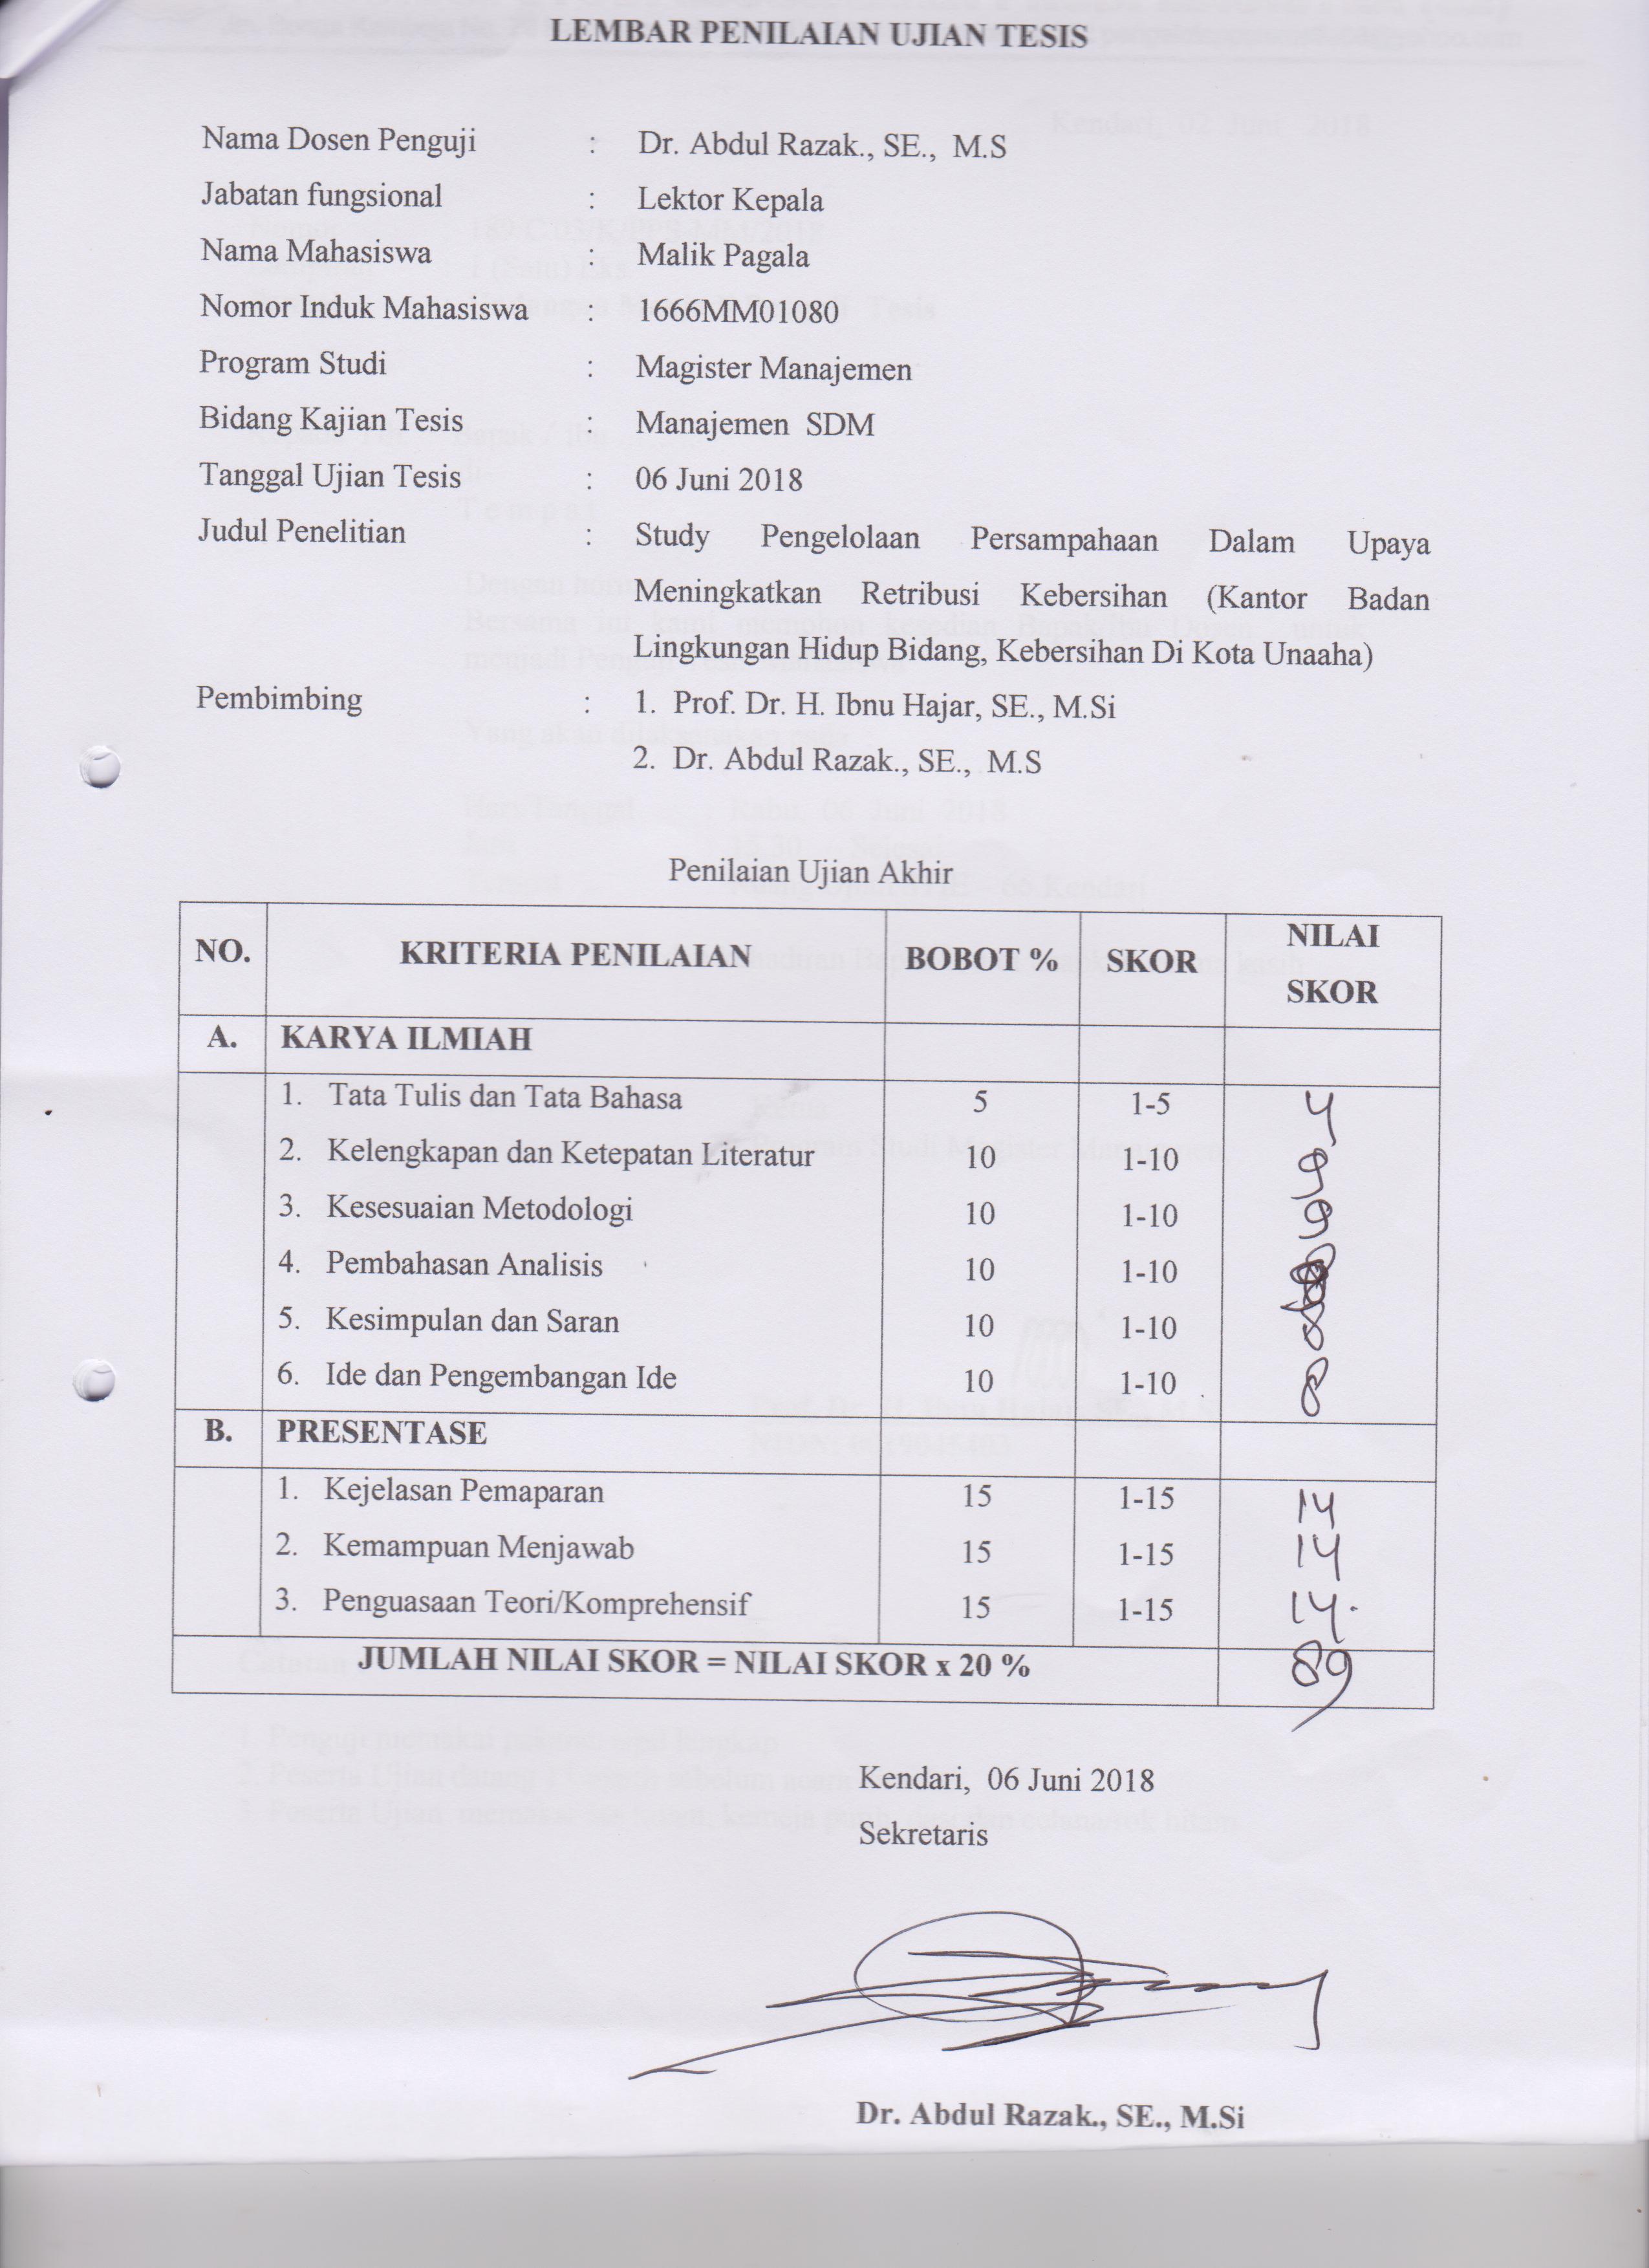 LEMBAR PENILAIAN UJIAN TESIS
Kendari, 02 Juni 2018
Nama Dosen Penguji : Dr. Abdul Razak., SE., M.S
Jabatan fungsional : Lektor Kepala
Nama Mahasiswa : Malik Pagala
Nomor Induk Mahasiswa : 1666MM01080
Program Studi : Magister Manajemen
Bidang Kajian Tesis : Manajemen SDM
Tanggal Ujian Tesis : 06 Juni 2018
Judul Penelitian : Study Pengelolaan Persampahaan Dalam Upaya
Meningkatkan Retribusi Kebersihan (Kantor Badan
Lingkungan Hidup Bidang, Kebersihan Di Kota Unaaha)
Pembimbing : 1. Prof. Dr. H. Ibnu Hajar, SE., M.Si
2. Dr. Abdul Razak., SE., M.S
Penilaian Ujian Akhir
NO. KRITERIA PENILAIAN BOBOT % SKOR NILAI SKOR
A. KARYA ILMIAH
1. Tata Tulis dan Tata Bahasa 5 1-5 4
2. Kelengkapan dan Ketepatan Literatur 10 1-10 9
3. Kesesuaian Metodologi 10 1-10 9
4. Pembahasan Analisis 10 1-10
5. Kesimpulan dan Saran 10 1-10 8
6. Ide dan Pengembangan Ide 10 1-10 8
B. PRESENTASE
1. Kejelasan Pemaparan 15 1-15 14
2. Kemampuan Menjawab 15 1-15 14
3. Penguasaan Teori/Komprehensif 15 1-15 14.
JUMLAH NILAI SKOR = NILAI SKOR x 20 % 89
Kendari, 06 Juni 2018
Sekretaris
Dr. Abdul Razak., SE., M.Si